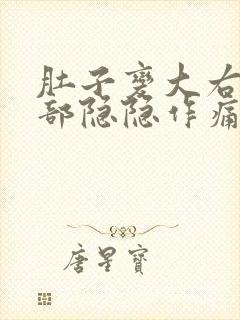 肚子变大右
部隐隐作痛
唐星寶